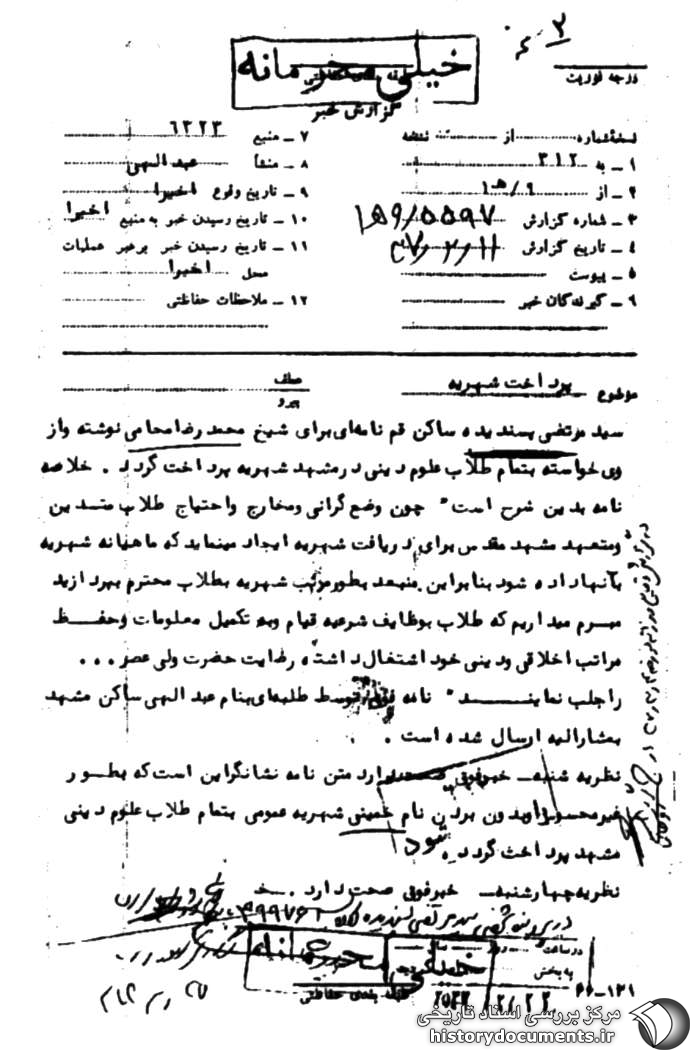 خیلی محرمانه
درجه فوریت
گزارش خبر
نسخه شماره از نسخه
۱ ـ به ۳۱۲
۲ ـ از ۹/هـ۱
۳ ـ شماره گزارش ۵۵۹۷/۹هـ۱
۴ ـ تاریخ گزارش ۴۷/۲/۱۱
۵ ـ پیوست
۶ ـ گیرندگان خبر
۷ ـ منبع ۶۲۲۳
۸ ـ منشأ عبدالهی
۹ ـ تاریخ وقوع اخیرا
۱۰ ـ تاریخ رسیدن خبر به منبع اخیرا
۱۱ ـ تاریخ رسیدن خبر برهبر عملیات
محل اخیرا
۱۲ ـ ملاحظات حفاظتی
موضوع پرداخت شهریه
عطف
پیرو
سید مرتضی پسندیده ساکن قم نامه‌ای برای شیخ محمدرضا محامی نوشته واز
وی خواسته بتمام طلاب علوم دینی درمشهد شهریه پرداخت گردد . خلاصه
نامه بدین شرح است " چون وضع گرانی ومخارج واحتیاج طلاب متدین
ومتعهد مشهد مقدس برای دریافت شهریه ایجاد مینماید که ماهیانه شهریه
بآنها داده شود بنابراین متعهد بطورمرتب شهریه بطلاب محترم بپردازید
مبرم میداریم که طلاب بوظایف شرعیه قیام وبه تکمیل معلومات وحفظ
مراتب اخلاقی ودینی خود اشتغال داشته رضایت حضرت ولی عصر...
راجلب نمایند " نامه فوق توسط طلبه‌ای بنام عبدالهی ساکن مشهد
بمشارالیه ارسال شده است .
نظریه شنبه ـ خبرفوق صحت دارد متن نامه نشانگراین است که بطور
غیرمحسوس وبدون بردن نام خمینی شهریه عمومی بتمام طلاب علوم دینی
مشهد پرداخت گردد . شود
نظریه چهارشنبه ـ خبرفوق صحت دارد . خ
خیلی محرمانه
طبقه بندی حفاظتی
درساعت
به بخش
۶۶-۱۲۱
مرکز بررسی اسناد تاریخی
historydocuments.ir